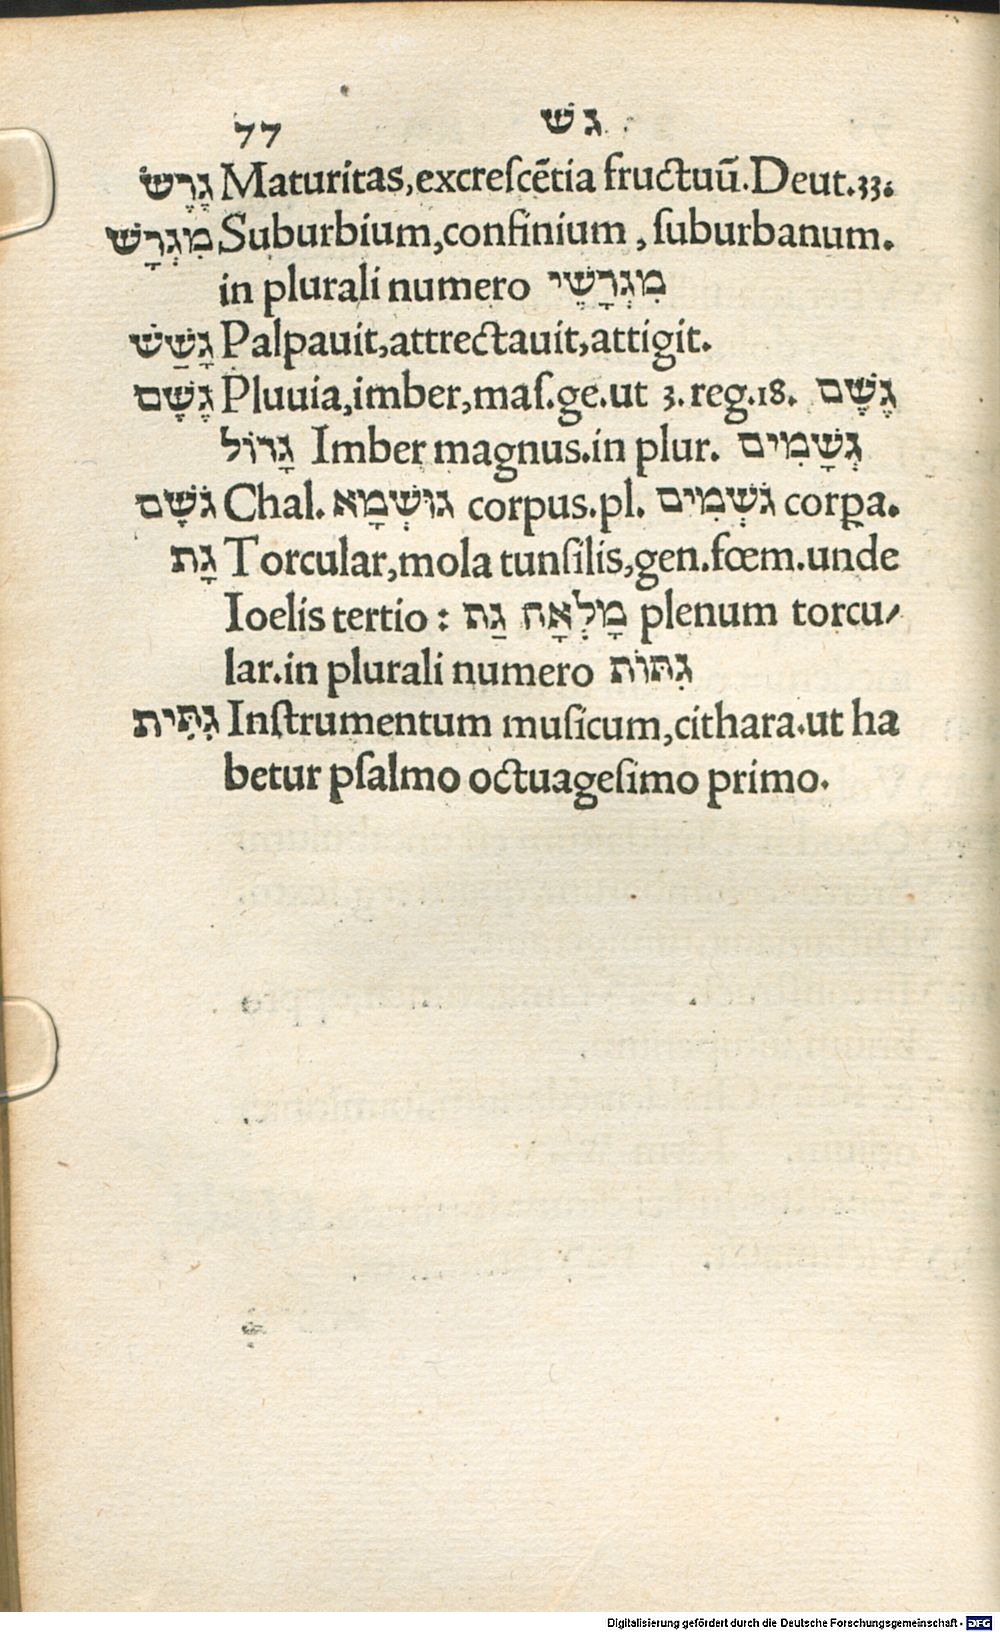 77 ג ש
גֶרֶשׂ Maturitas,excreſcẽtia fructuũ.Deut.33.
מִגְרָשׁ Suburbium,confinium, ſuburbanum.
in plurali numero מִגְרָשֵׁי
גָשַׁשׁ Palpauit,attrectauit,attigit.
גֶשֶׁם Pluuia,imber,maſ.ge.ut 3. reg.18. גֶשֶׁם
גָדוֹל Imber magnus.in plur. גְשָׁמִים
גֹשֶׁם Chal. גוּשְׁמָא corpus.pl. גֹשְׁמִים corꝑa.
גַת Torcular,mola tunſilis,gen.fœm.unde
Ioelis tertio: מָלְאָה גַת plenum torcu/
lar.in plurali numero גִתּוֹת
גִתִּית Inſtrumentum muſicum,cithara.ut ha
betur pſalmo octuageſimo primo.
Digitalisierung gefördert durch die Deutsche Forschungsgemeinschaft - DFG